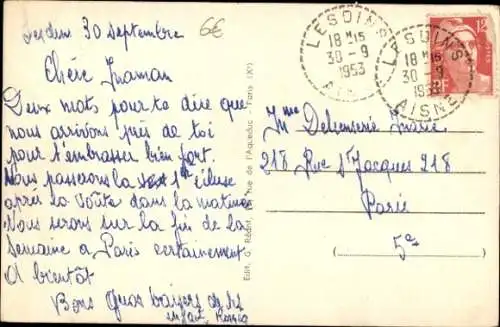 Lesdins 30 Septembre
6€
Chère Maman
Deux mots pour te dire que
nous arrivons près de toi
pour t'embrasser bien fort.
Nous passerons la 1e écluse
après la voûte dans la matinée
Nous serons sur la fin de la
Semaine a Paris certainement
A bientôt
Bons Gros baisers de tes
enfants
LESDINS
18 H 15
30 - 9
1953
AISNE
LESDINS
18 H 15
30 - 9
1953
AISNE
12
RF
Edit. G. Réant, rue de l'Aqueduc - Paris (Xe)
Mme
218 Rue St Jacques 218
Paris
5e